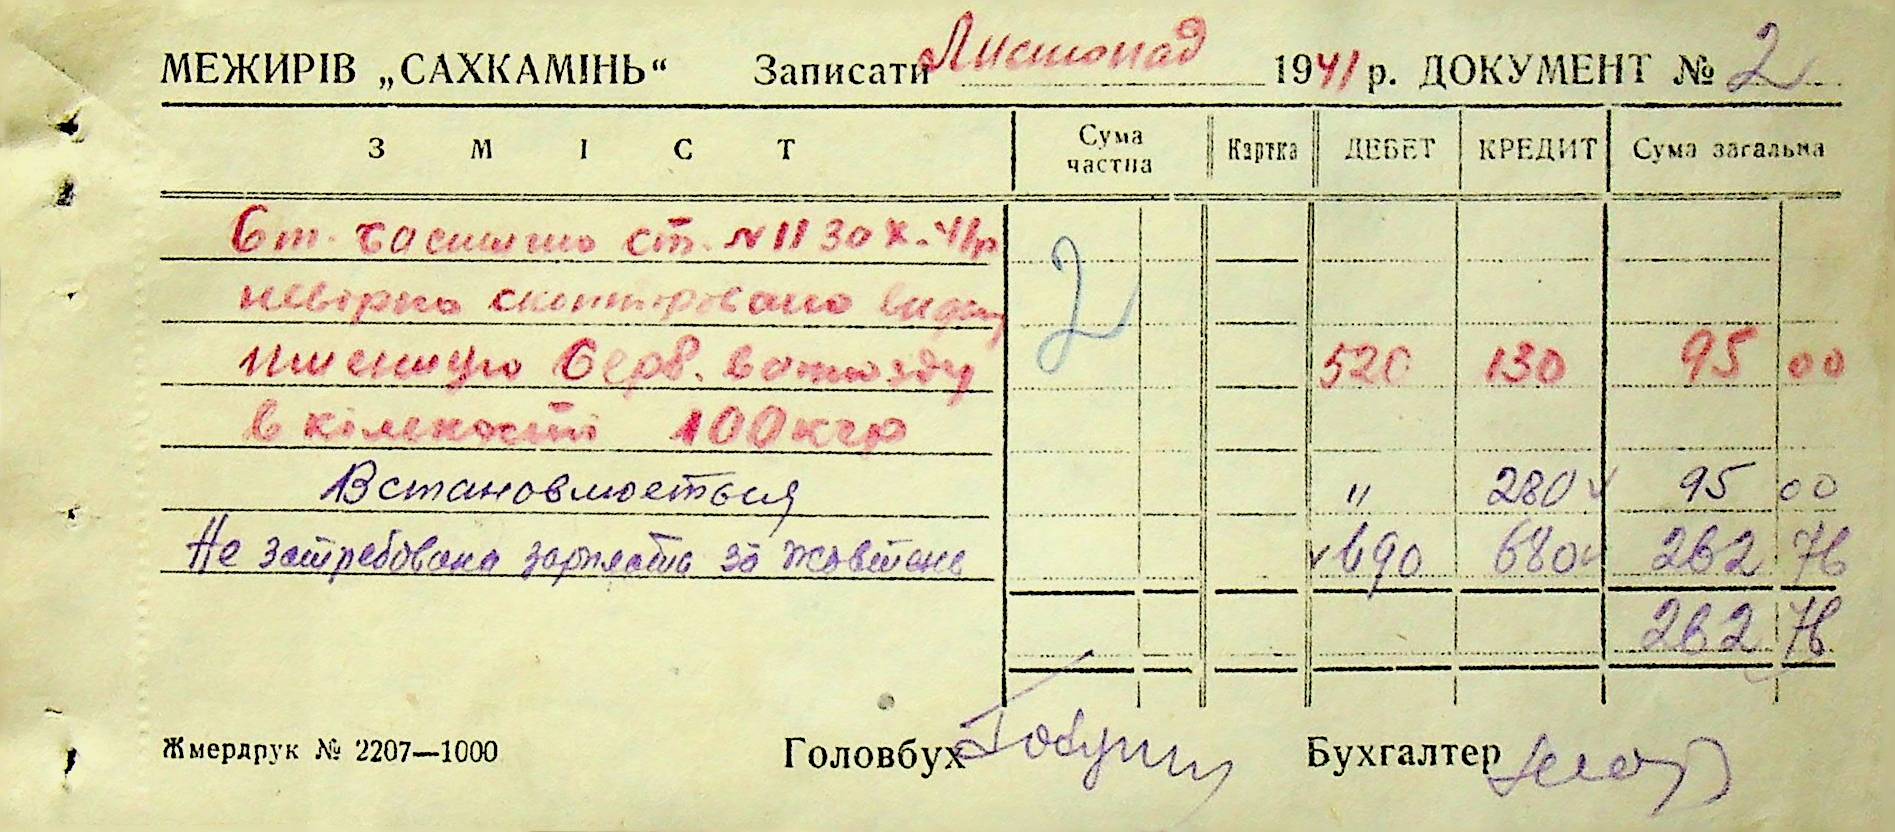 МЕЖИРІВ „САХКАМІНЬ“ Записати Листопад 1941 р. ДОКУМЕНТ № 2
ЗМІСТ Сума частна Картка ДЕБЕТ КРЕДИТ Сума загальна
ст. N 11 30 X. 41р
2
невірно сконтировано
пшеницю 520 130 95 00
в кількості 100 кгр
Встановлюється " 280 95 00
Не затребована зарплата за жовтень 690 680 262 76
262 76
Жмердрук № 2207—1000 Головбух Бухгалтер